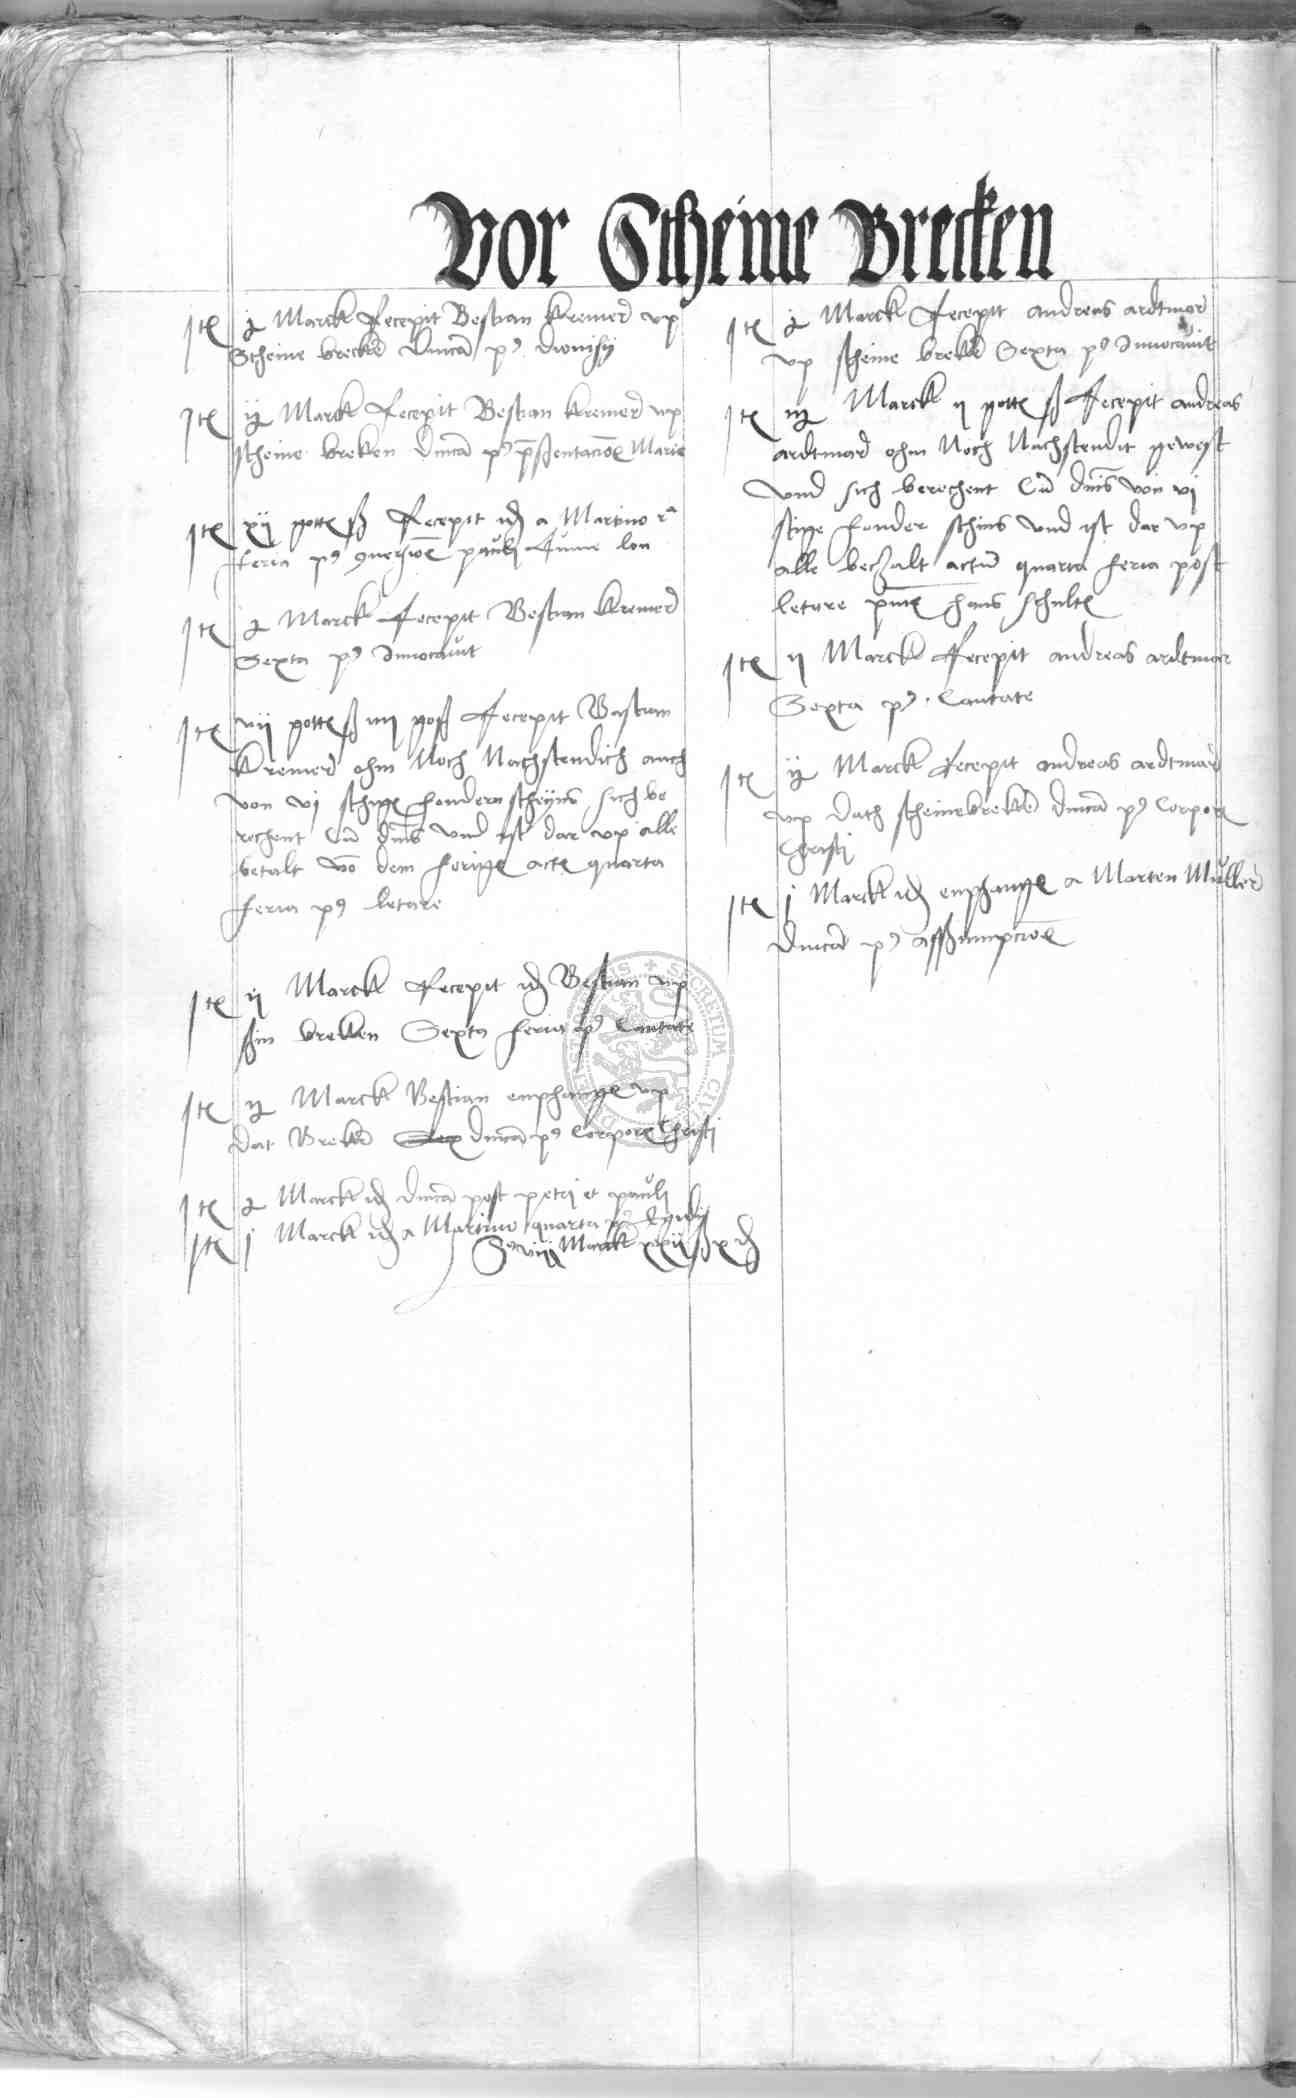 Vor Stheine Brecken
Ite j Marck Recepit Bestian Kremer vp
Stheine brecke Dnica p9 Dionisij
Ite ij Marck Recepit Bestian Kremer vp
stheine breken Dnica p9 psentacioe Marie
Ite xij gotte ß Recepit a Martino
feria p9 9uersioe pauli
Ite j Marck Recepit Bestian Kremer
Sexta p9 Inuocauit
Ite vij gotte ß iiij goß Recepit Bastian
Kremer ohm Noch Nachstendich auch
von vj stige fonder stheyns sich be
rechent Cu dnis vnd ist dar vp alle
betalt vo dem forige acte quarta
feria p9 letare
Ite ij Marck Recepit Bestian vp
stin breken Sexta feria p9 Cantate
Ite ij Marck Bestian enphange vp
dat Breke Sex dnica p9 Corpore Christi
Ite j Marck dnica post petri et pauli
Ite j Marck a Martino quarta
Marck
Ite j Marck Recepit Andreas ardtmar
vp stheine breke Sexta p9 Inuocauit
Ite iij Marck ij gotte ß Recepit Andreas
ardtmar ohm Noch Nachstendit gewest
vnd sich berechent Cu dnis von vj
stige fonder sthins vnd ist dar vp
alle beczalt actu quarta feria post
letare pnte hans schulte
Ite ij Marck Recepit andreas ardtmar
Sexta p9 Cantate
Ite ij Marck Recepit andreas ardtmar
vp dath stheinebreke dnica p9 Corpore
Christi
Ite j Marck enphange a Marten Muller
Dnica p9 assumpcioe